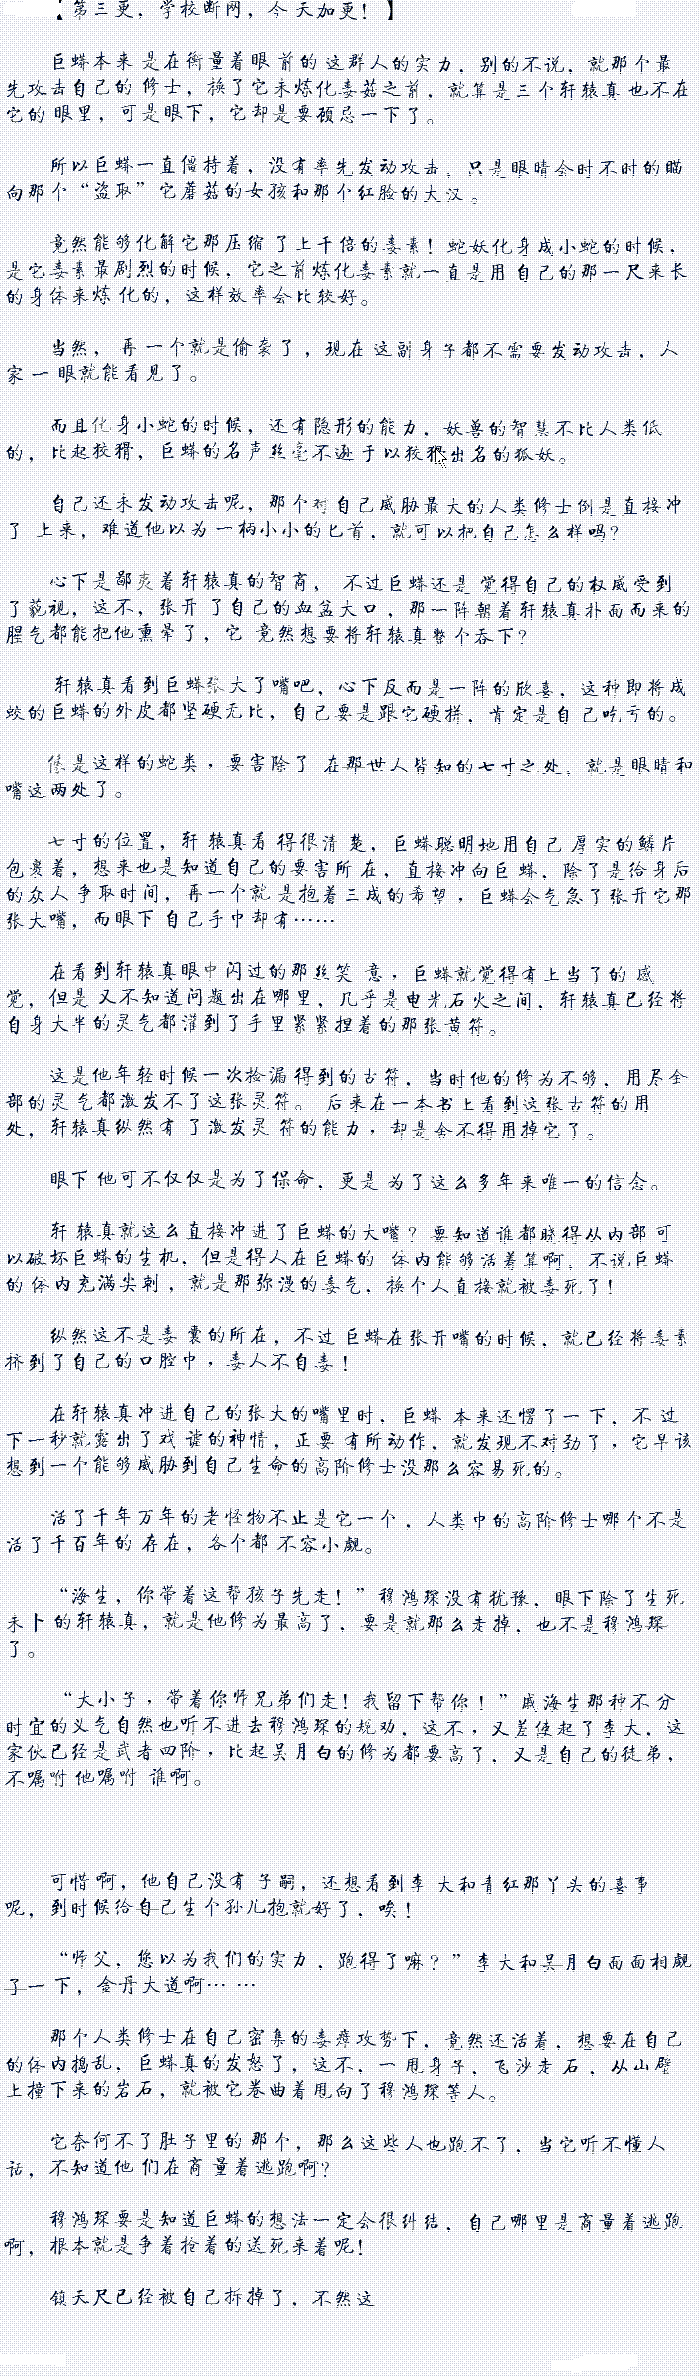 【第三更，学校断网，今天加更！】
巨蟒本来是在衡量着眼前的这群人的实力，别的不说，就那个最
先攻击自己的修士，换了它未炼化毒菇之前，就算是三个轩辕真也不在
它的眼里，可是眼下，它却是要顾忌一下了。
所以巨蟒一直僵持着，没有率先发动攻击，只是眼睛会时不时的瞄
向那个“盗取”它蘑菇的女孩和那个红脸的大汉。
竟然能够化解它那压缩了上千倍的毒素！蛇妖化身成小蛇的时候，
是它毒素最剧烈的时候，它之前炼化毒素就一直是用自己的那一尺来长
的身体来炼化的，这样效率会比较好。
当然，再一个就是偷袭了，现在这副身子都不需要发动攻击，人
家一眼就能看见了。
而且化身小蛇的时候，还有隐形的能力，妖兽的智慧不比人类低
的，比起狡猾，巨蟒的名声丝毫不逊于以狡猾出名的狐妖。
自己还未发动攻击呢，那个对自己威胁最大的人类修士倒是直接冲
了上来，难道他以为一柄小小的匕首，就可以把自己怎么样吗？
心下是鄙夷着轩辕真的智商，不过巨蟒还是觉得自己的权威受到
了藐视，这不，张开了自己的血盆大口，那一阵朝着轩辕真扑面而来的
腥气都能把他熏晕了，它竟然想要将轩辕真整个吞下？
轩辕真看到巨蟒张大了嘴吧，心下反而是一阵的欣喜，这种即将成
蛟的巨蟒的外皮都坚硬无比，自己要是跟它硬拼，肯定是自己吃亏的。
像是这样的蛇类，要害除了在那世人皆知的七寸之处，就是眼睛和
嘴这两处了。
七寸的位置，轩辕真看得很清楚，巨蟒聪明地用自己厚实的鳞片
包裹着，想来也是知道自己的要害所在，直接冲向巨蟒，除了是给身后
的众人争取时间，再一个就是抱着三成的希望，巨蟒会气急了张开它那
张大嘴，而眼下自己手中却有……
在看到轩辕真眼中闪过的那丝笑意，巨蟒就觉得有上当了的感
觉，但是又不知道问题出在哪里，几乎是电光石火之间，轩辕真已经将
自身大半的灵气都灌到了手里紧紧捏着的那张黄符。
这是他年轻时候一次捡漏得到的古符，当时他的修为不够，用尽全
部的灵气都激发不了这张灵符。后来在一本书上看到这张古符的用
处，轩辕真纵然有了激发灵符的能力，却是舍不得用掉它了。
眼下他可不仅仅是为了保命，更是为了这么多年来唯一的信念。
轩辕真就这么直接冲进了巨蟒的大嘴？要知道谁都晓得从内部可
以破坏巨蟒的生机，但是得人在巨蟒的体内能够活着算啊，不说巨蟒
的体内充满尖刺，就是那弥漫的毒气，换个人直接就被毒死了！
纵然这不是毒囊的所在，不过巨蟒在张开嘴的时候，就已经将毒素
挤到了自己的口腔中，毒人不自毒！
在轩辕真冲进自己的张大的嘴里时，巨蟒本来还愣了一下，不过
下一秒就露出了戏谑的神情，正要有所动作，就发现不对劲了，它早该
想到一个能够威胁到自己生命的高阶修士没那么容易死的。
活了千年万年的老怪物不止是它一个，人类中的高阶修士哪个不是
活了千百年的存在，各个都不容小觑。
“海生，你带着这帮孩子先走！”穆鸿琛没有犹豫，眼下除了生死
未卜的轩辕真，就是他修为最高了，要是就那么走掉，也不是穆鸿琛
了。
“大小子，带着你师兄弟们走！我留下帮你！”戚海生那种不分
时宜的义气自然也听不进去穆鸿琛的规劝，这不，又差使起了李大，这
家伙已经是武者四阶，比起吴月白的修为都要高了，又是自己的徒弟，
不嘱咐他嘱咐谁啊。
可惜啊，他自己没有子嗣，还想看到李大和青红那丫头的喜事
呢，到时候给自己生个孙儿抱就好了，唉！
“师父，您以为我们的实力，跑得了嘛？”李大和吴月白面面相觑
了一下，金丹大道啊……
那个人类修士在自己密集的毒瘴攻势下，竟然还活着，想要在自己
的体内捣乱，巨蟒真的发怒了，这不，一甩身子，飞沙走石，从山壁
上撞下来的岩石，就被它卷曲着甩向了穆鸿琛等人。
它奈何不了肚子里的那个，那么这些人也跑不了，当它听不懂人
话，不知道他们在商量着逃跑啊？
穆鸿琛要是知道巨蟒的想法一定会很纠结，自己哪里是商量着逃跑
啊，根本就是争着抢着的送死来着呢！
锁天尺已经被自己拆掉了，不然这